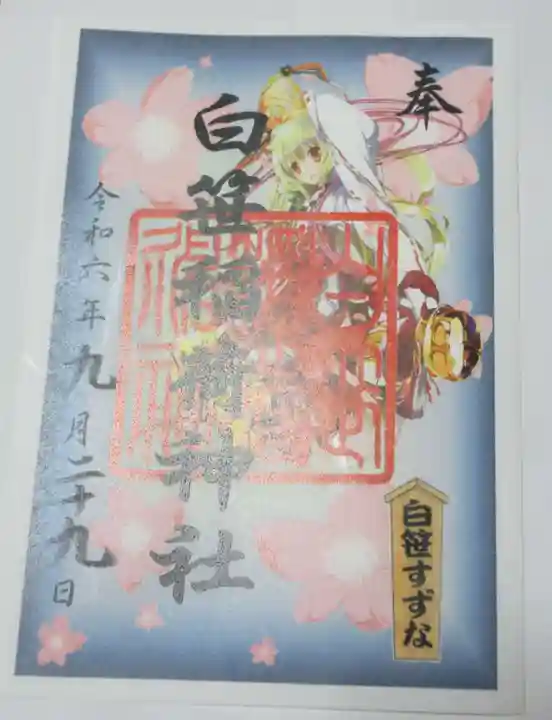 奉
白笹稲荷神社
令和六年九月二十九日
白笹すずな